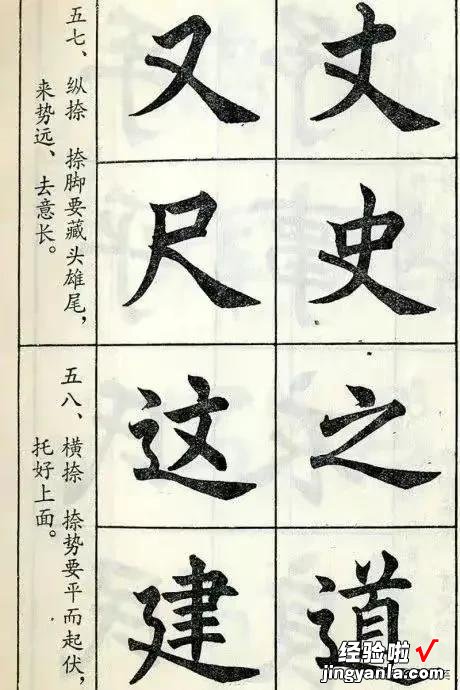 五七、纵捺 捺脚要藏头雄尾，
来势远、去意长。
丈
史
又
尺
五八、横捺 捺势要平而起伏，
托好上面。
之
道
这
建
经验啦√
jingyanla.com